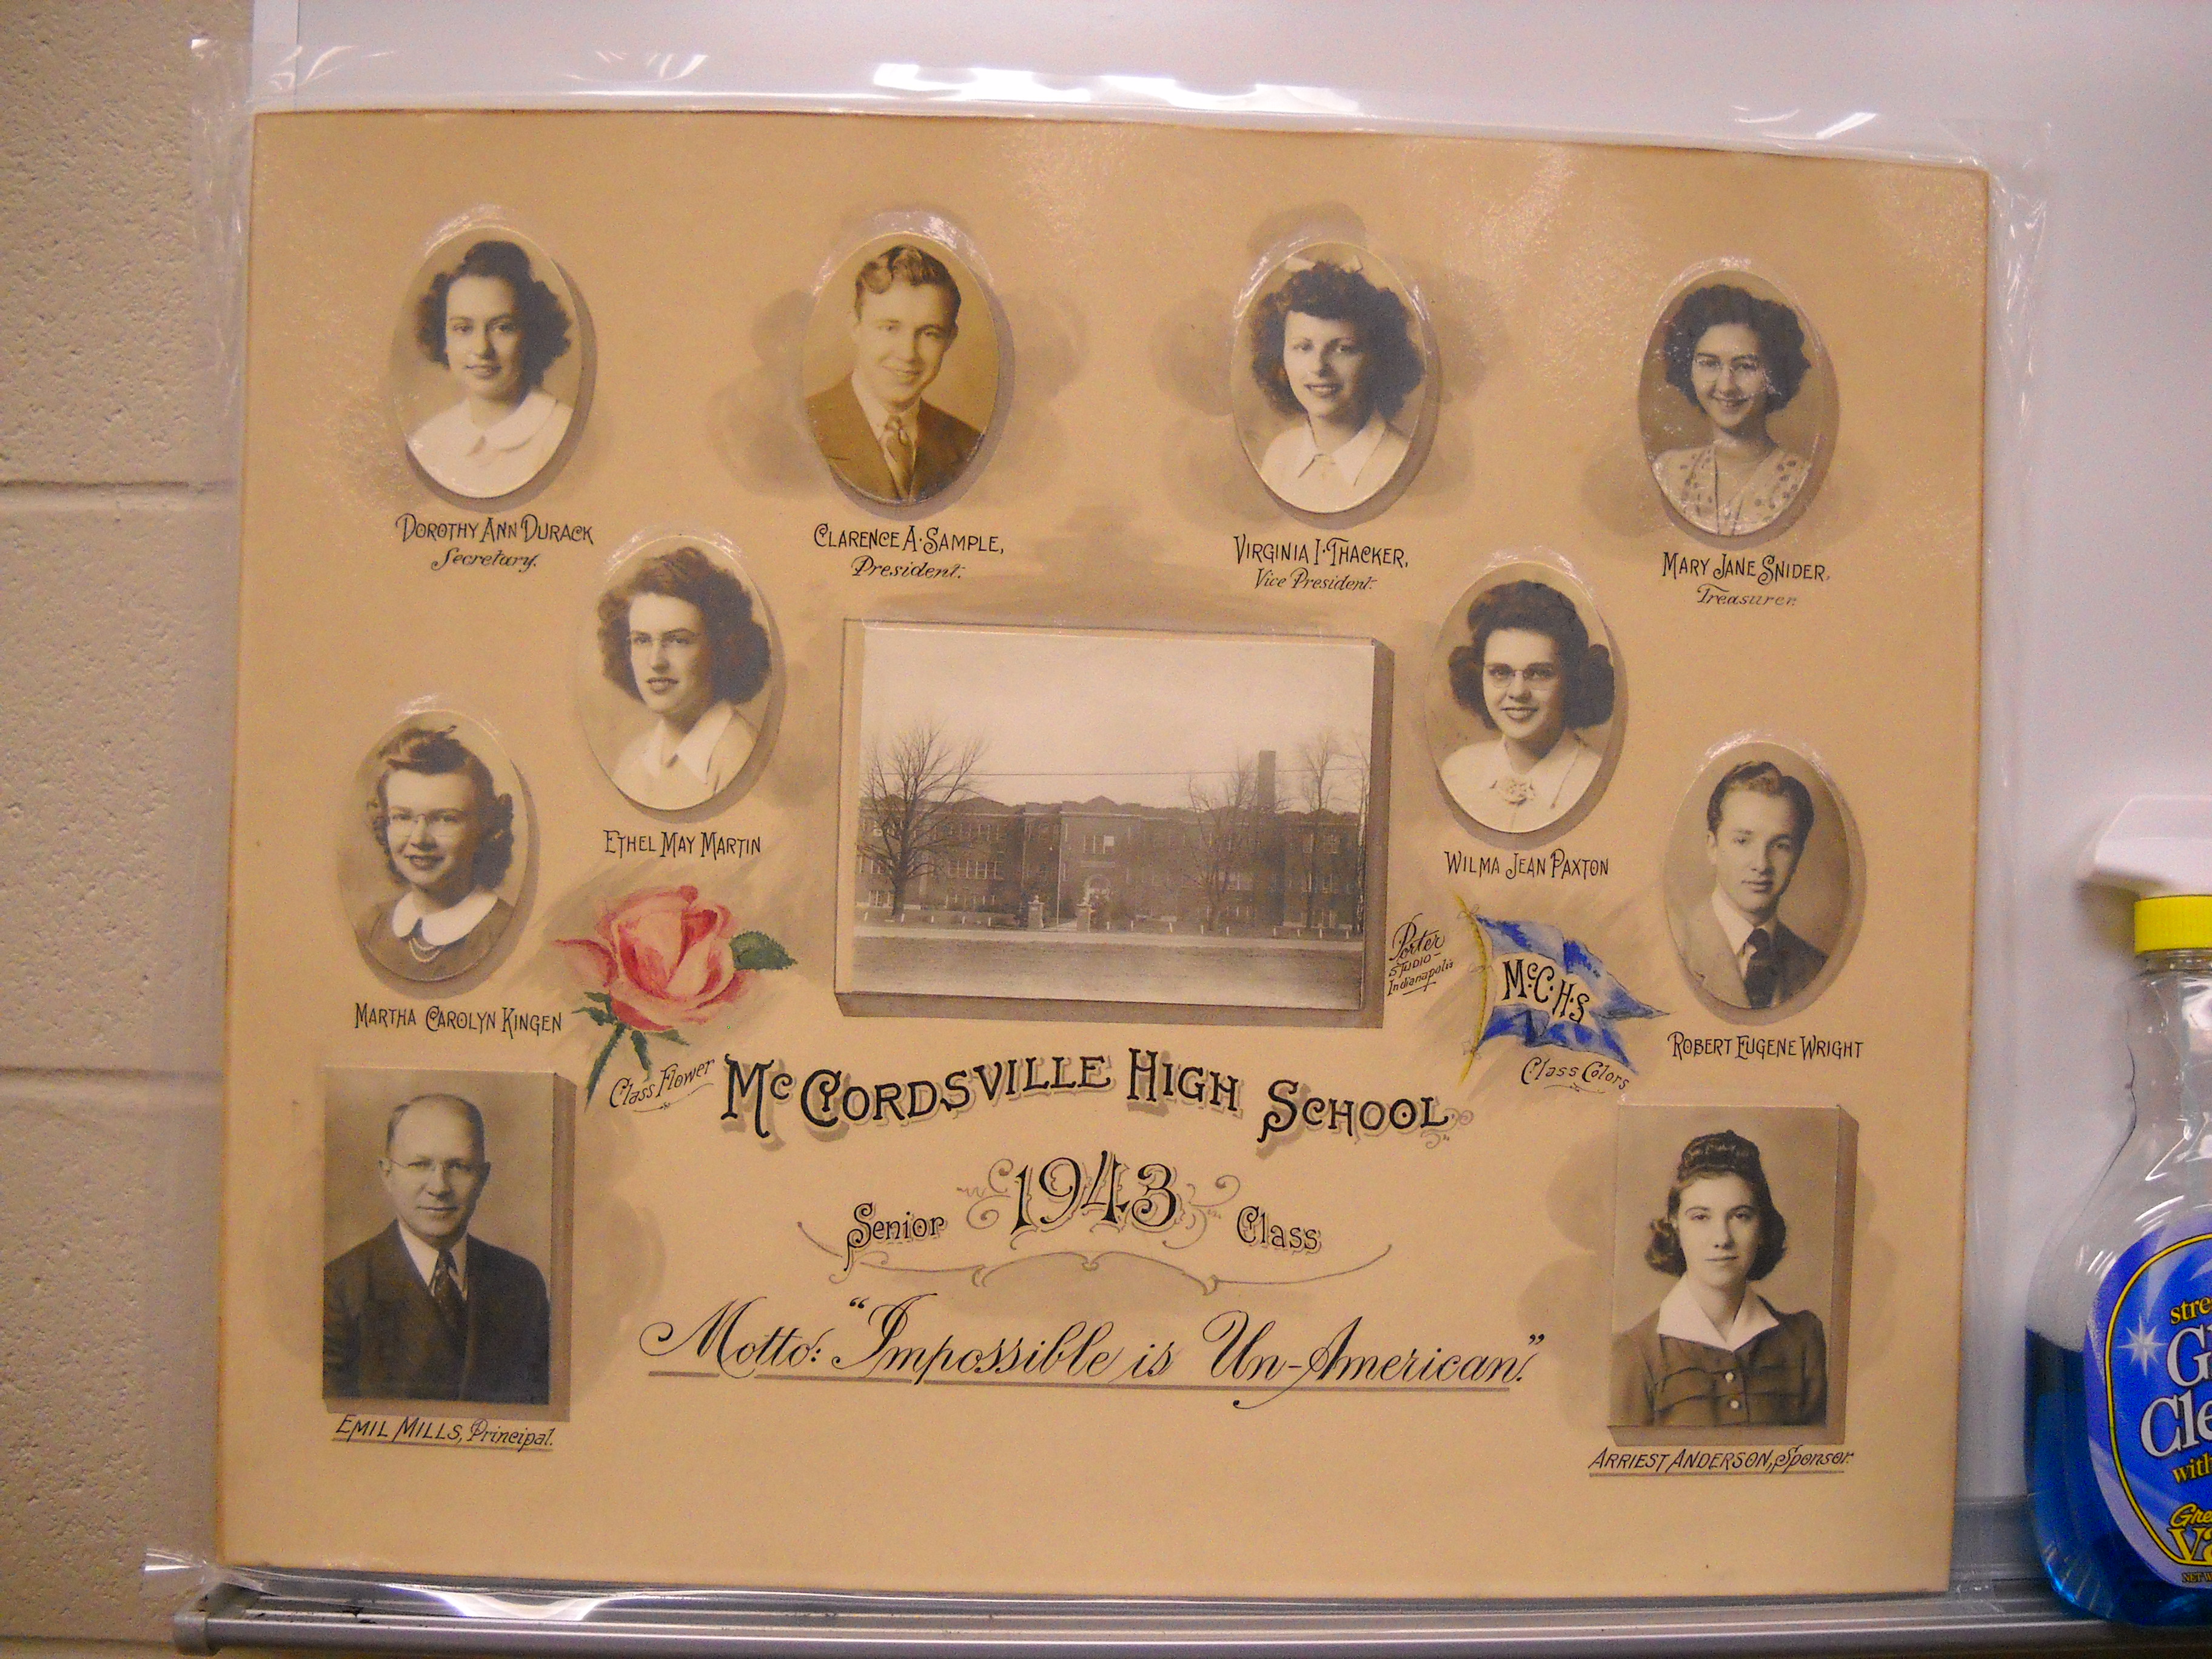 DOROTHY ANN DURACK
Secretary.
CLARENCE A. SAMPLE,
President.
VIRGINIA I. THACKER,
Vice President.
MARY JANE SNIDER,
Treasurer.
ETHEL MAY MARTIN
WILMA JEAN PAXTON
MARTHA CAROLYN KINGEN
ROBERT EUGENE WRIGHT
Porter
STUDIO-
Indianapolis
McC.H.S
Class Flower
Class Colors
McCORDSVILLE HIGH SCHOOL
Senior 1943 Class
Motto: "Impossible is Un-American."
EMIL MILLS, Principal.
ARRIEST ANDERSON, Sponsor.
stre
G
Cle
with
Gre
Va